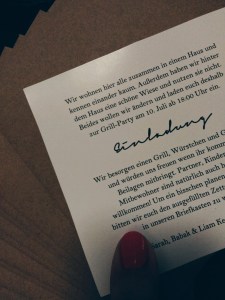 Wir wohnen hier alle zusammen in einem Haus und
kennen einander kaum. Außerdem haben wir hinter
dem Haus eine schöne Wiese und nutzen sie nicht.
Beides wollen wir ändern und laden euch deshalb
zur Grill-Party am 10. Juli ab 18.00 Uhr ein.
Einladung
Wir besorgen einen Grill, Würstchen und G
und würden uns freuen wenn ihr komm
Beilagen mitbringt. Partner, Kinder
Mitbewohner sind natürlich auch h
willkommen! Um ein bisschen plane
bitten wir euch den ausgefüllten Zett
in unseren Briefkasten zu w
arah, Babak & Liam Ke